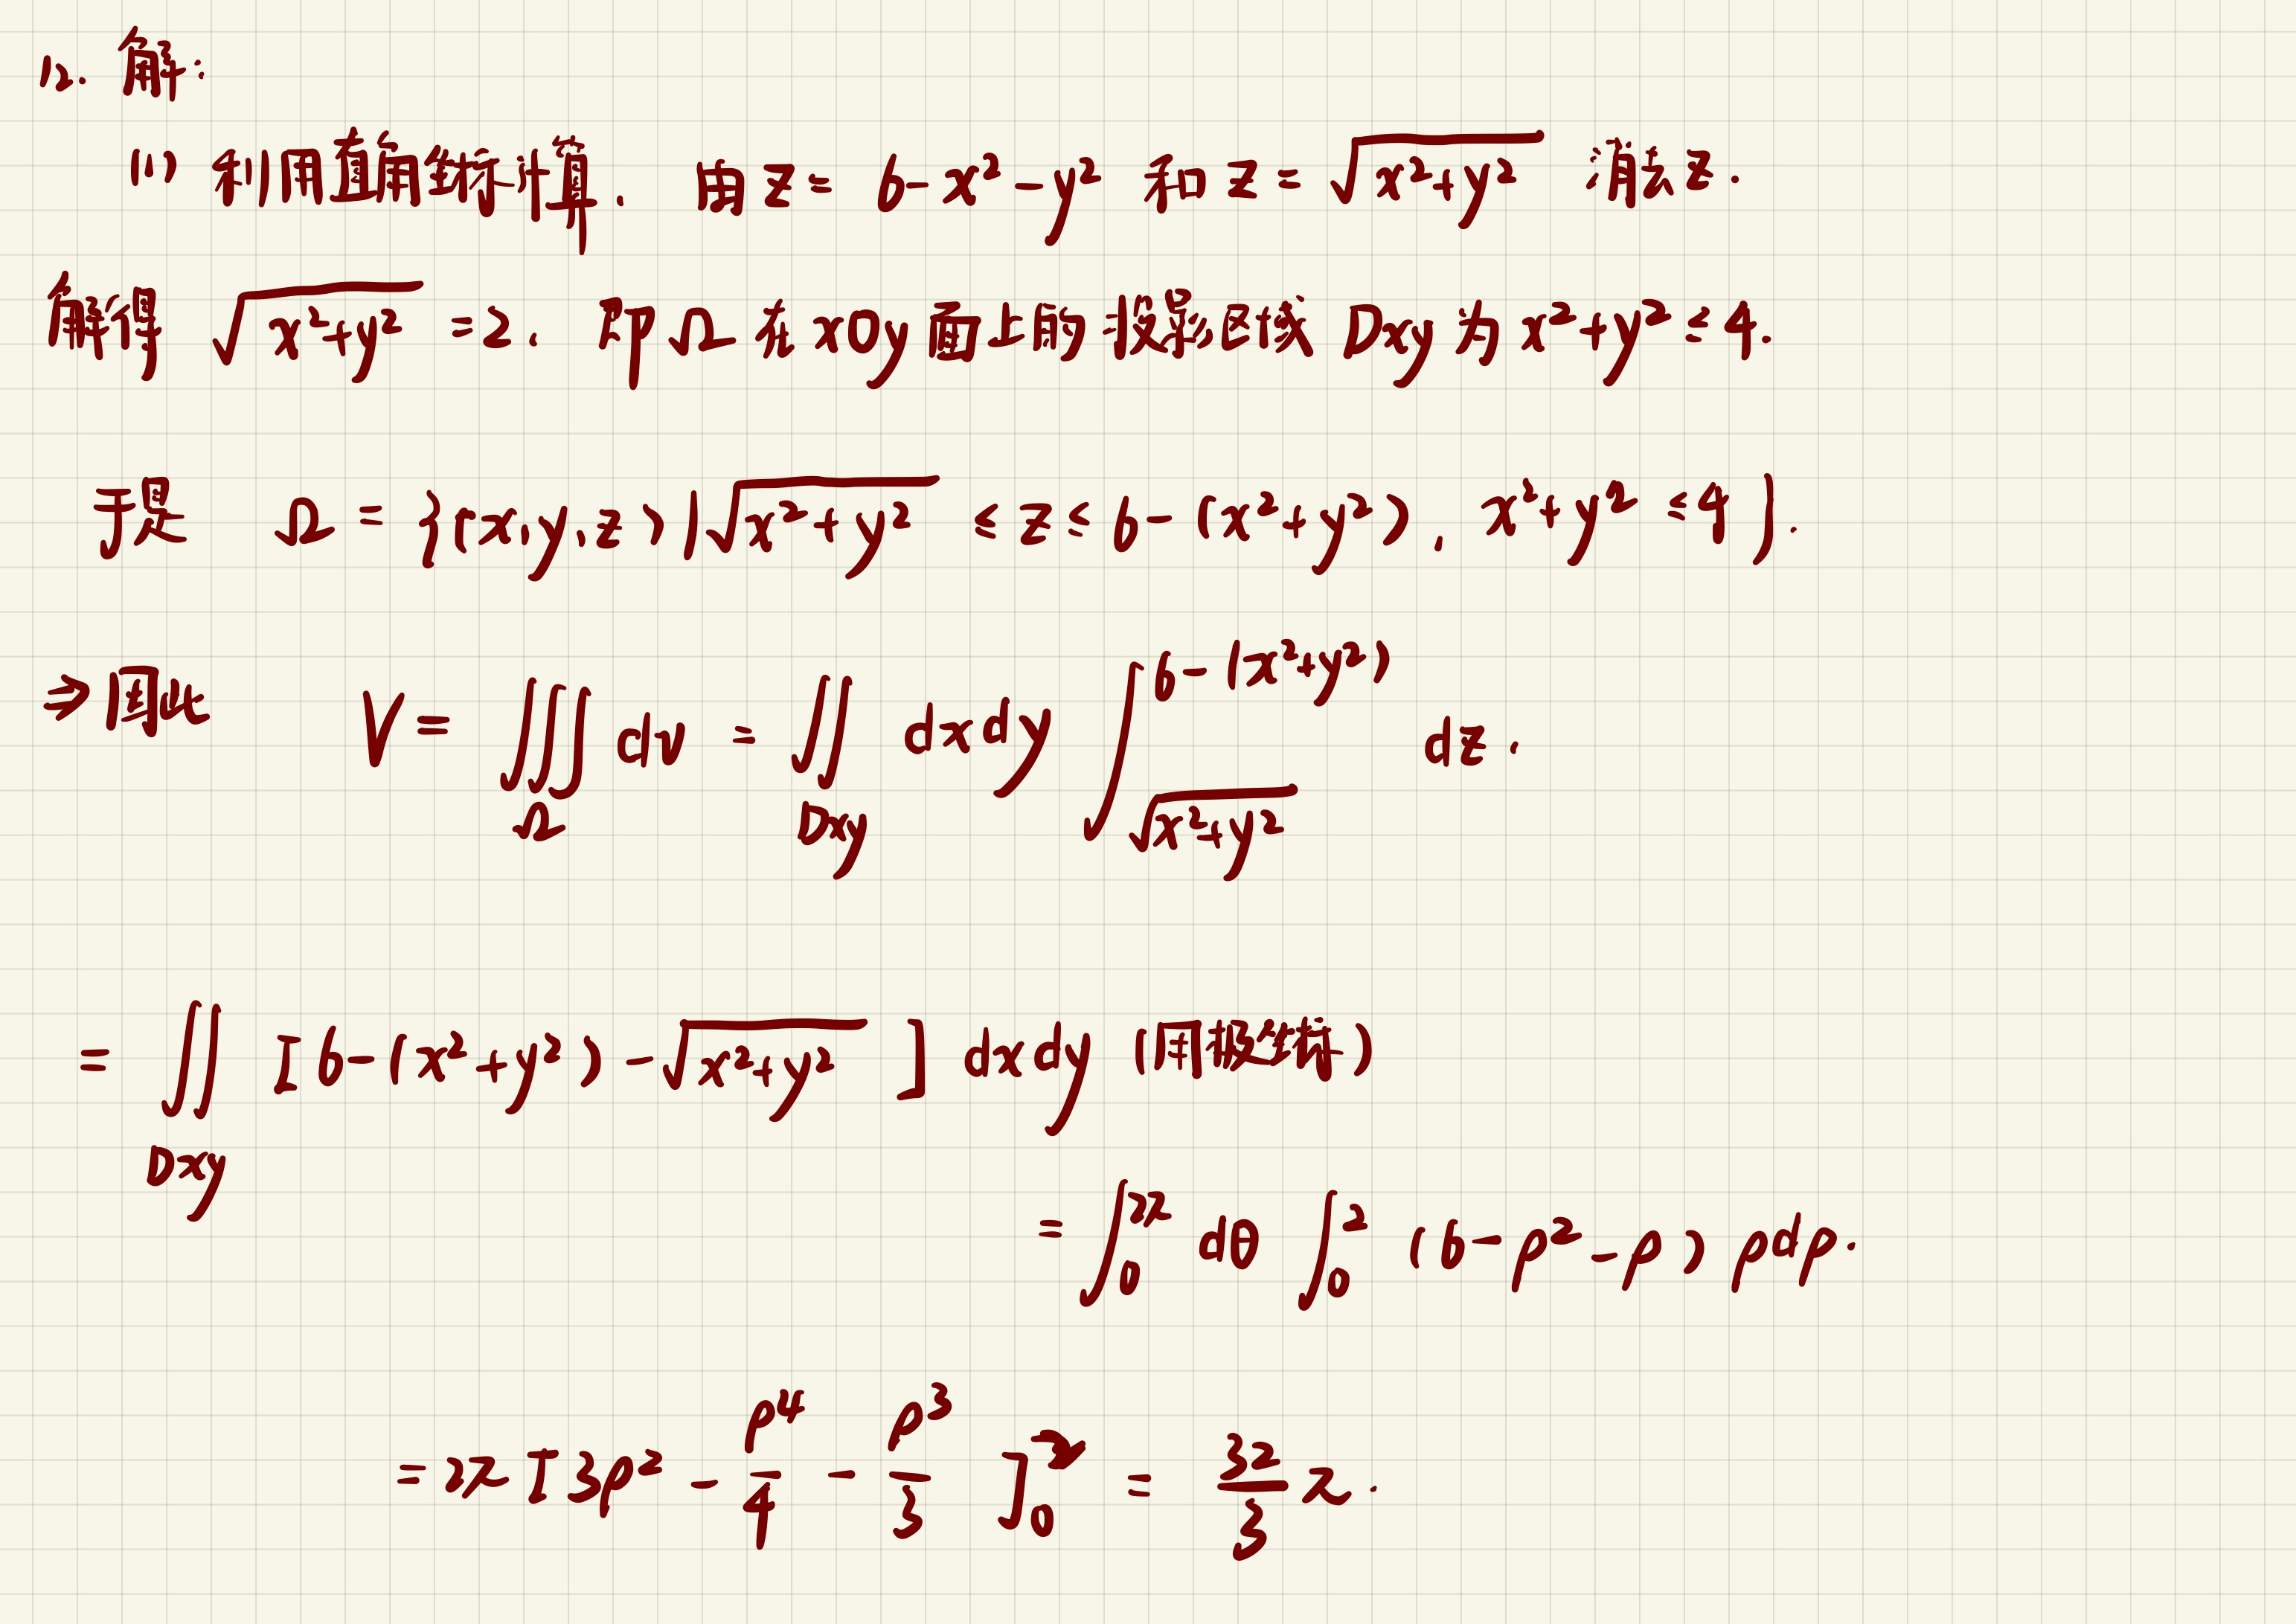 12. 解:
(1) 利用直角坐标计算. 由 z = 6-x²-y² 和 z = √(x²+y²) 消去 z.
解得 √(x²+y²) = 2. 即 Ω 在 xOy 面上的投影区域 Dxy 为 x²+y² ≤ 4.
于是 Ω = {(x,y,z)|√(x²+y²) ≤ z ≤ 6-(x²+y²), x²+y² ≤ 4}.
⇒ 因此 V = ∭_Ω dv = ∬_Dxy dxdy ∫_{√(x²+y²)}^{6-(x²+y²)} dz.
= ∬_Dxy [6-(x²+y²)-√(x²+y²)] dxdy (用极坐标)
= ∫_0^{2π} dθ ∫_0^2 (6-ρ²-ρ) ρdρ.
= 2π [3ρ² - ρ⁴/4 - ρ³/3]_0^2 = 32/3 π.